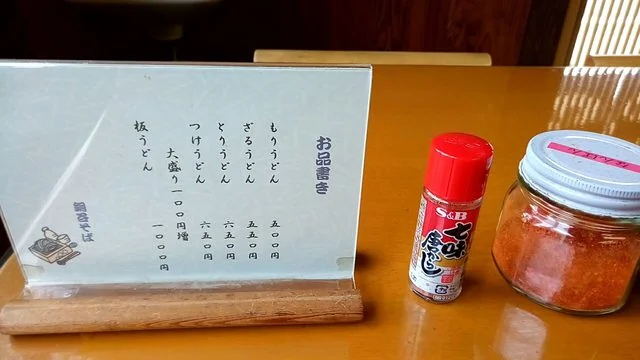 お品書き
もりうどん 五〇〇円
ざるうどん 五五〇円
とりうどん 六五〇円
つけうどん 六五〇円
大盛り一〇〇円増
板うどん 一〇〇〇円
S&B
七味
唐がらし